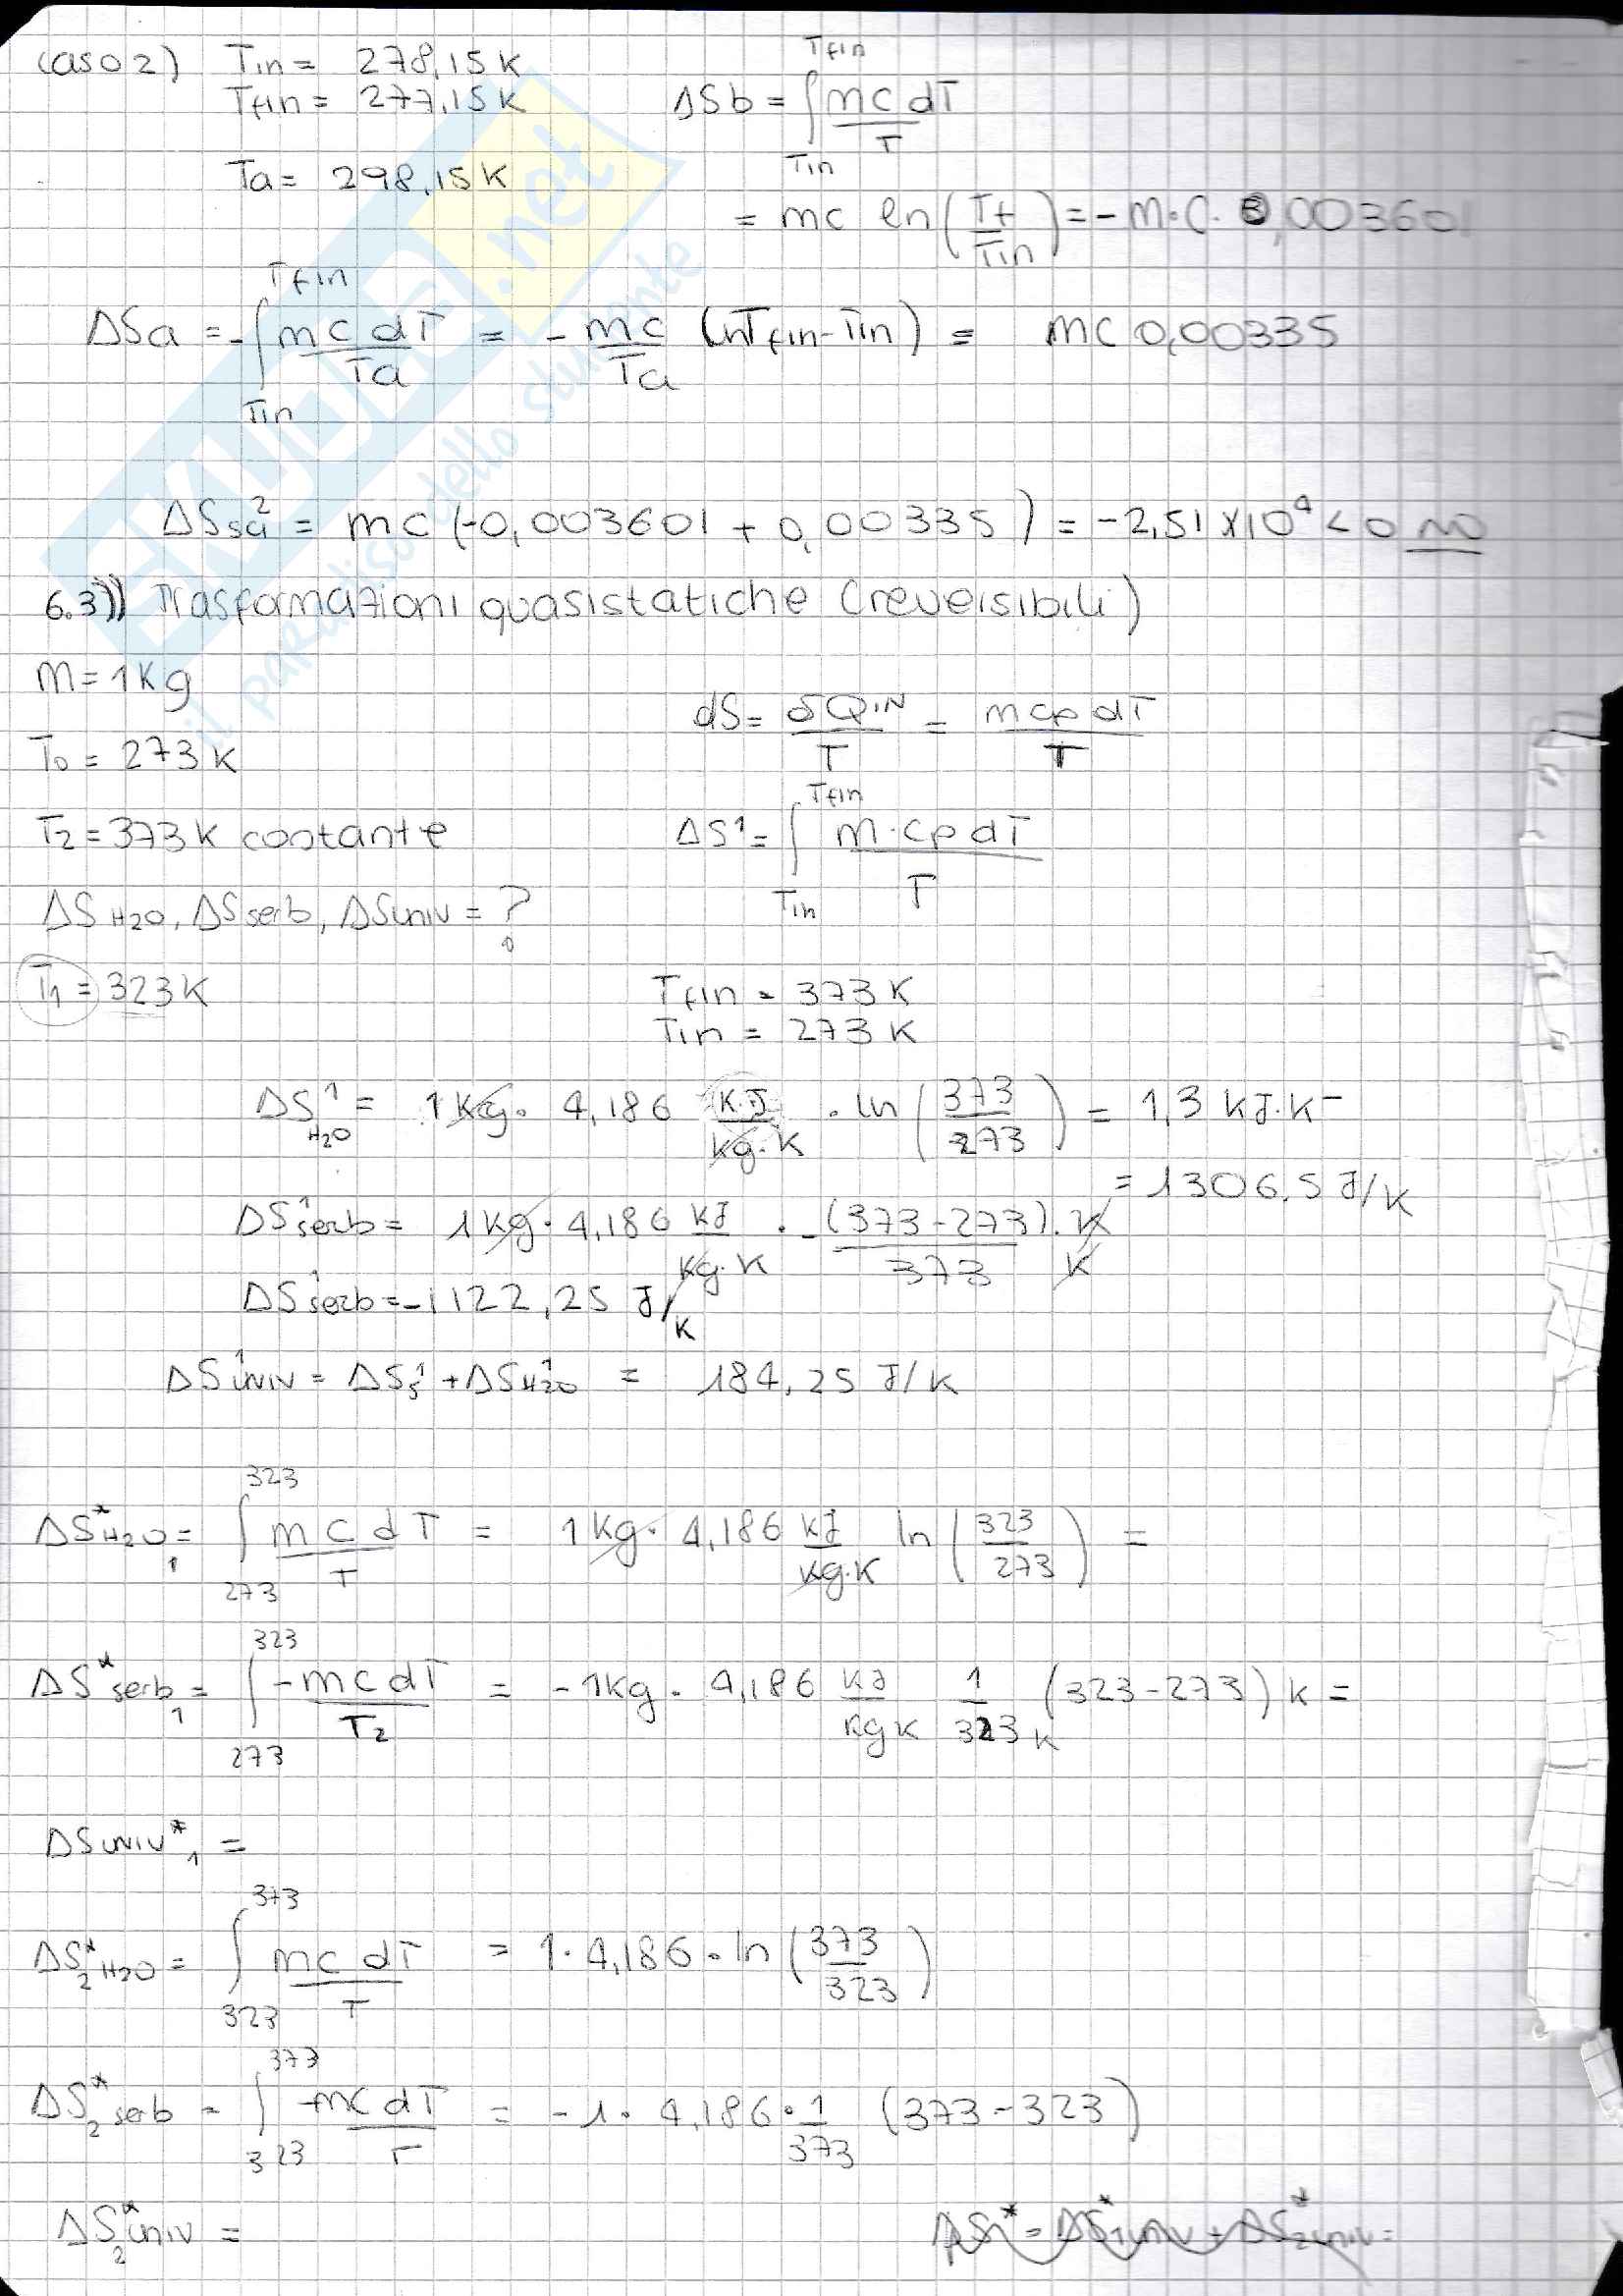 caso 2) Tin = 278,15 K
Tfin = 277,15 K
ΔSb = ∫_Tin^Tfin mc dT / T
Ta = 298,15 K
= mc ln (Tf / Tin) = - m·c· 0,003601
ΔSa = - ∫_Tin^Tfin mc dT / Ta = - mc / Ta (Tfin - Tin) = mc 0,00335
ΔSsa² = mc (-0,003601 + 0,00335) = -2,51 x10⁴ < 0 NO
6.3)) Trasformazioni quasistatiche (reversibili)
m = 1 Kg
dS = δQ IN / T = mcp dT / T
T0 = 273 K
T2 = 373 K costante
ΔS¹ = ∫_Tin^Tfin m·cp dT / T
ΔS H2O, ΔS serb, ΔS univ = ?
T1 = 323 K
Tfin = 373 K
Tin = 273 K
ΔS¹ H2O = 1 Kg · 4,186 KJ / kg·K · ln (373 / 273) = 1,3 KJ·K⁻
= 1306,5 J/K
ΔS¹ serb = 1 kg · 4,186 KJ / kg·K · - (373-273)·K / 373 K
ΔS¹ serb = -1122,25 J/K
ΔS¹ univ = ΔS¹ s + ΔS¹ H2O = 184,25 J/K
ΔS* H2O 1 = ∫_273^323 mc dT / T = 1 Kg · 4,186 KJ / kg·K ln (323 / 273) =
ΔS* serb 1 = ∫_273^323 -mc dT / T2 = -1 kg · 4,186 KJ / kg K 1 / 323 K (323-273) K =
ΔS univ* 1 =
ΔS* 2 H2O = ∫_323^373 mc dT / T = 1·4,186·ln (373 / 323)
ΔS* 2 serb = ∫_323^373 -mc dT / T = -1·4,186·1 / 373 (373-323)
ΔS* 2 univ =
ΔS* = ΔS* 1 univ + ΔS* 2 univ =
SKUOLA.net
il paradiso dello studente